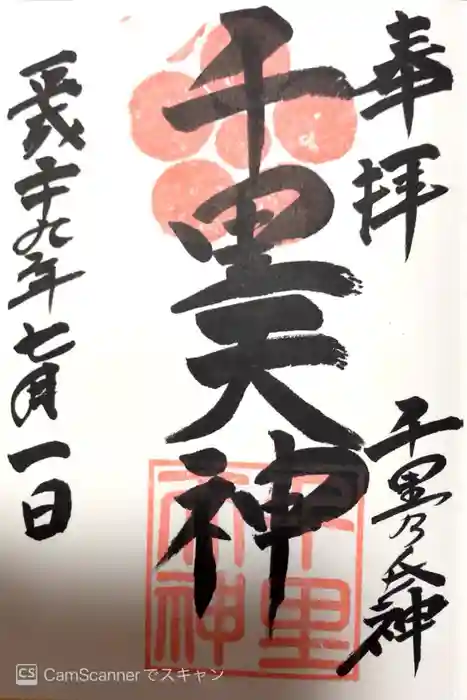 奉拝
千里乃氏神
千里天神
千里
天神
平成二十九年七月一日
CS CamScannerでスキャン